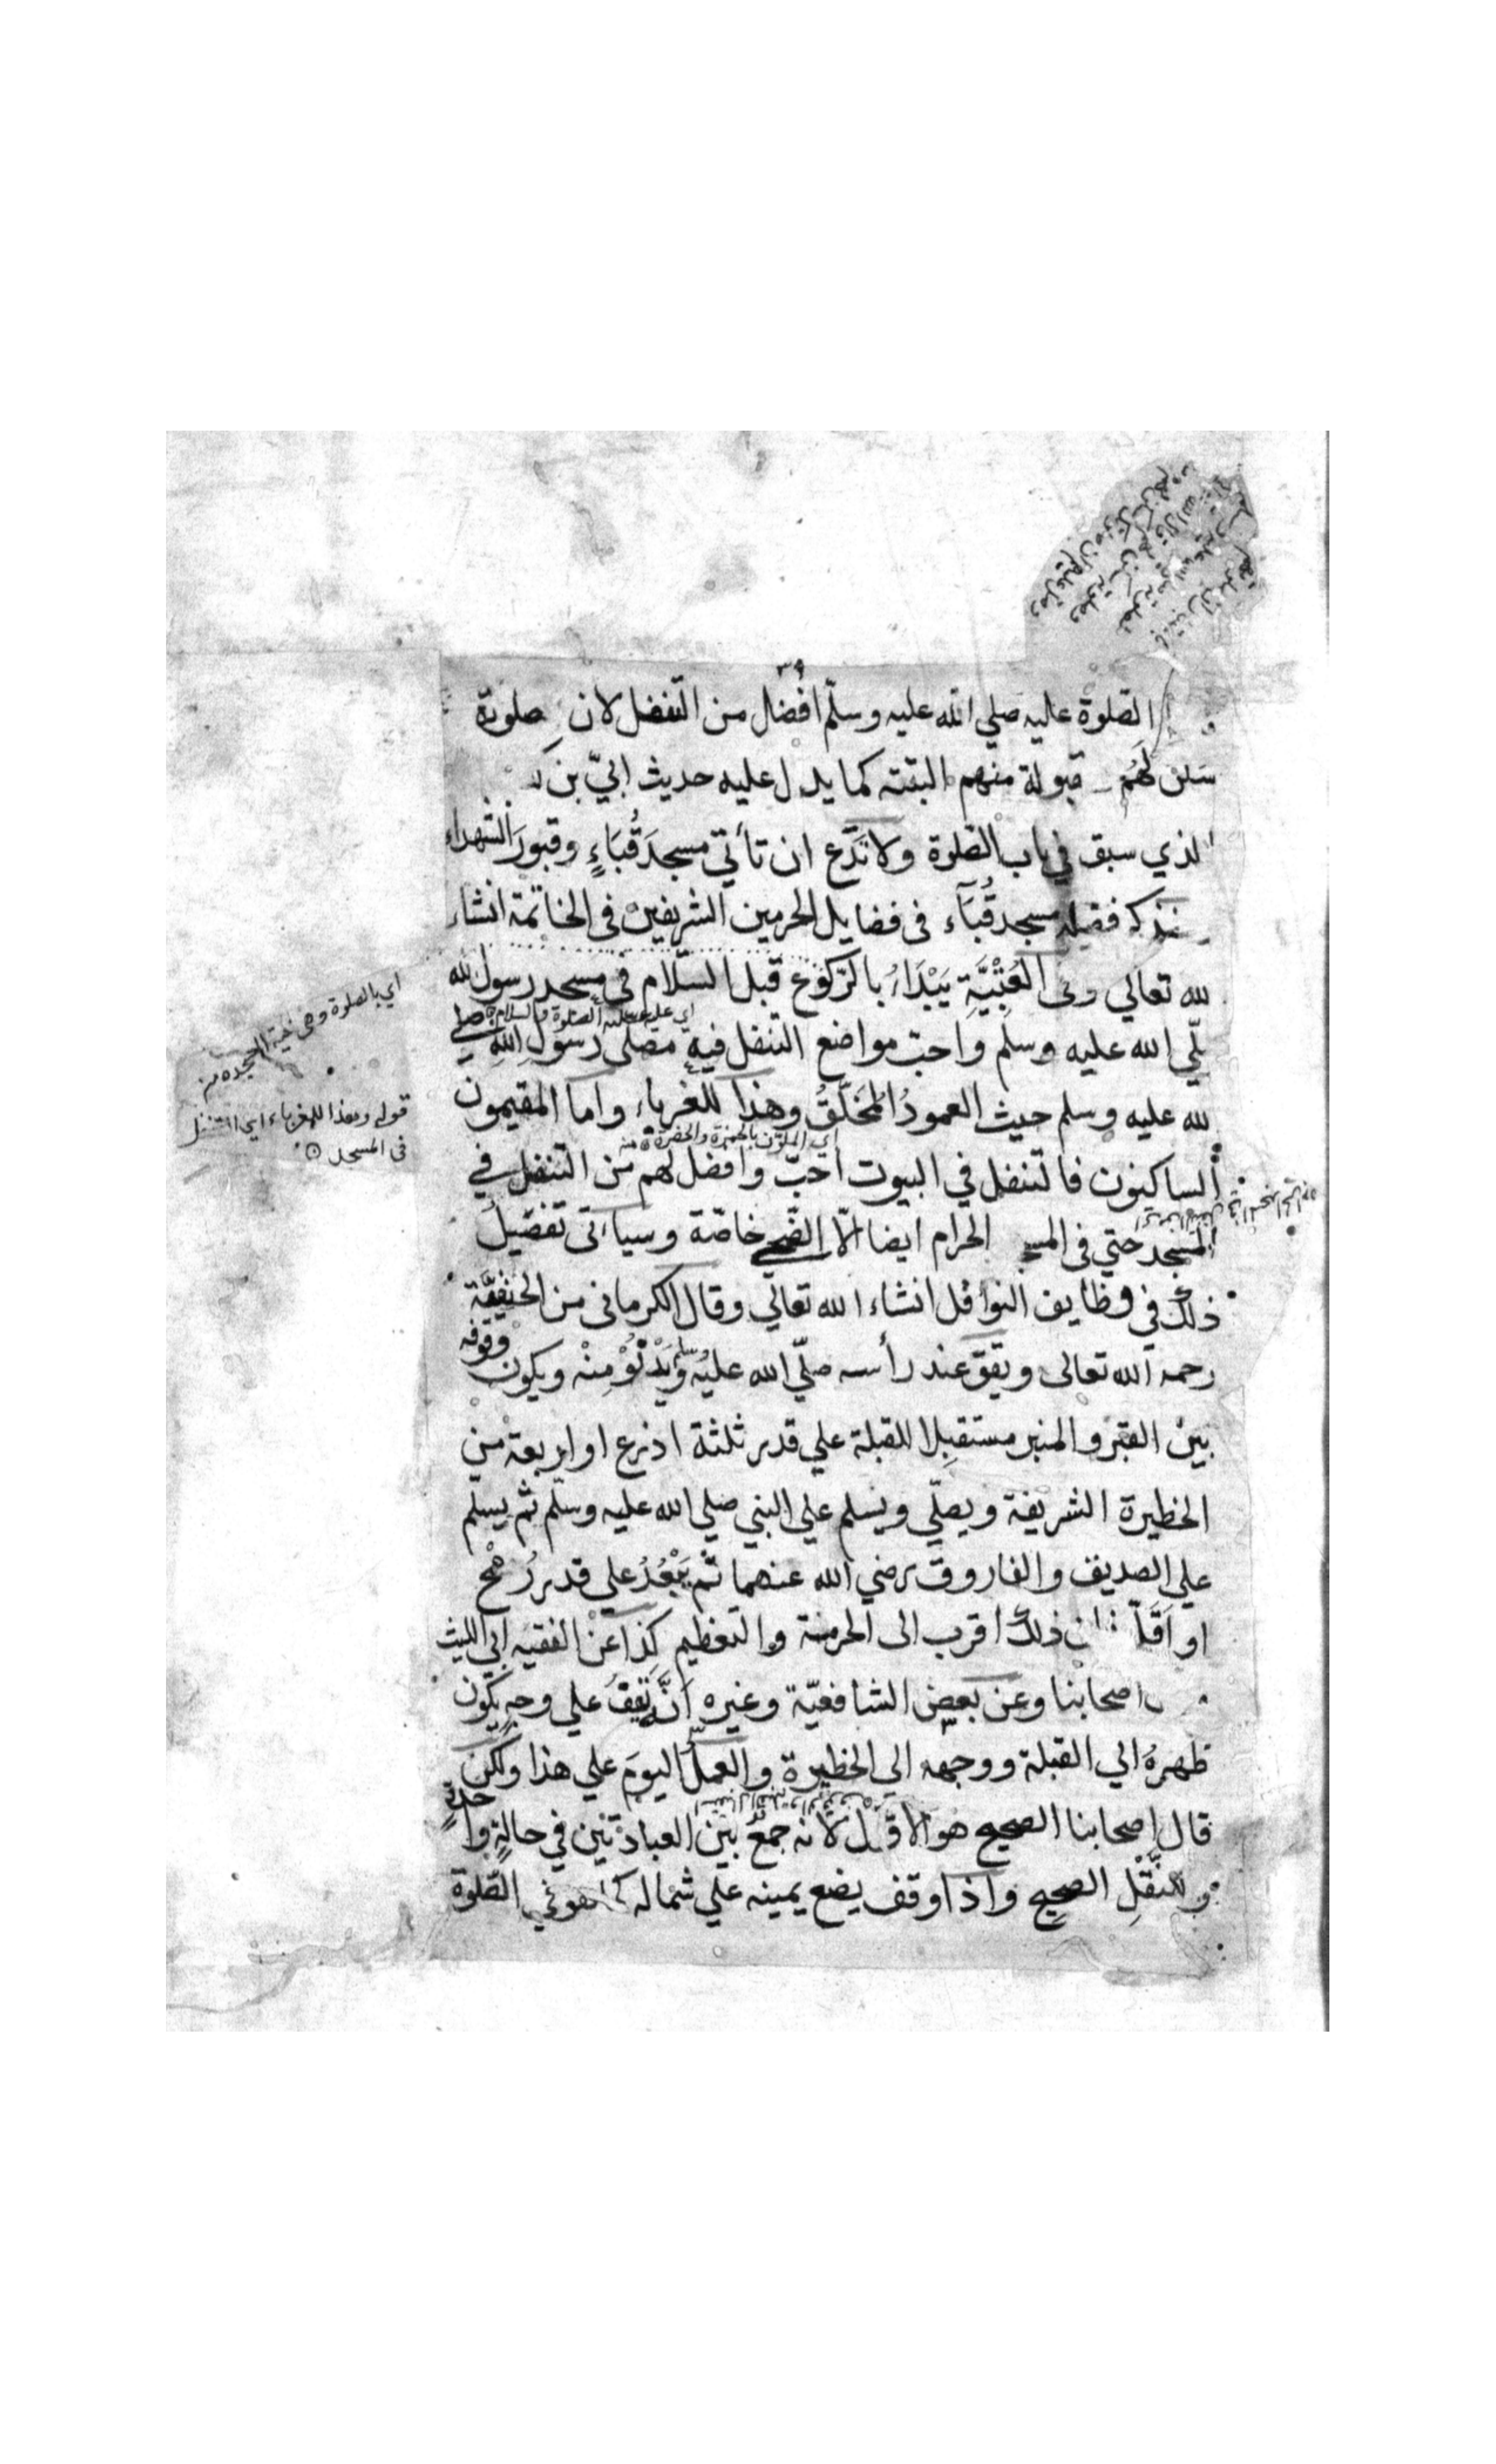 ٣٩
الصلوة عليه صلي الله عليه وسلّم افضال من التنفل لان صلوته
سكن لهُم قبولة منهم البتة كما يدل عليه حديث ابيّ بن ك
الذي سبق في باب الصّلوة ولا تَدَع ان تأتي مسجدَ قُبَاءٍ وقبورَ الشهداء
نذكر فضيلة مسجد قُبَاء في فضايل الحرمين الشريفين في الخاتمة انشاء
لله تعالي وفي العُتْبِيَّةِ يَبْدَاُ بالركوع قبل السّلام في مسجد رسول الله
اي عليه الصلوة والسلام
لّي الله عليه وسلم واحبّ مواضع التنفل فيه مصلى رسول الله صلي
لله عليه وسلم حيث العمودُ المُخَلَّقُ وهذا للغرباء واما المقيمون
اي الملوّن بالحمرة والخضرة منه
الساكنون فالتنفل في البيوت احبّ وافضل لهم من التنفل في
المسجد حتي في المسجد الحرام ايضا الّا الضّحي خاصّة وسياتى تفصيلُ
ذلك في وظايف النوافل انشاء الله تعالي وقال الكرماني من الحنفيّة
رحمه الله تعالى ويقف عند رأسه صلّي الله عليه وسلم ويَدْنُوْ مِنْه ويكون وقوفه
بين القبر والمنبر مستقبِلا للقبلة علي قدر ثلثة اذرع او اربعة من
الحظيرة الشريفة ويصلّي ويسلم علي النبي صلي الله عليه وسلّم ثم يسلّم
علي الصديق والفاروق رضي الله عنهما ثم يَبْعُدُ علي قدر رُمْحٍ
او اَقَلّ ذلك اقرب الى الحرمة والتعظيم كذا عن الفقيه ابي الليث
اصحابنا وعن بعض الشافعيّة وغيره اَنَّه يقفُ علي وجهٍ يكون
ظهرهُ الي القبلة ووجهه الي الحظيرة والعملُ اليومَ علي هذا ولكن
قال اصحابنا الصحيح هو الاوّل لانه جمعٌ بين العبادتين في حالةٍ واحدةٍ
وللنّقْلِ الصحيح واذا وقف يضع يمينه علي شماله كما هو في الصّلوة
اي بالصلوة وهي تحية المسجد منه
قوله وهذا للغرباء اي التنفل
في المسجد